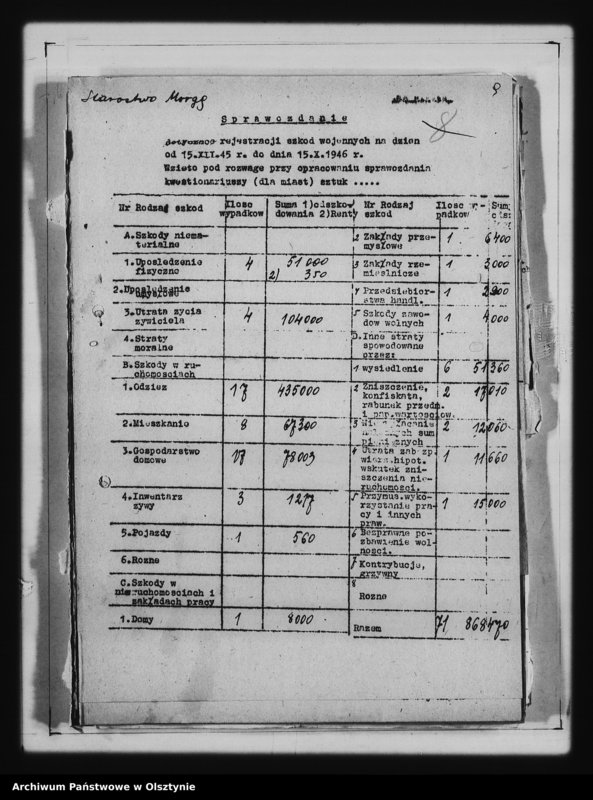 Starostwo Morąg
9
8
Sprawozdanie
dotyczące rejestracji szkod wojennych na dzien
od 15.XII.45 r. do dnia 15.X.1946 r.
Wzieto pod rozwage przy opracowaniu sprawozdania
kwestionariuszy (dla miast) sztuk .....
Nr Rodzaj szkod
Ilosc wypadkow
Suma 1)odszkodowania 2)Renty
Nr Rodzaj szkod
Ilosc padkow
A.Szkody niematerialne
1.Uposledzenie fizyczne 4 51000
2) 350
2.Uposledzenie umysłowe
3.Utrata zycia zywiciela 4 104000
4.Straty moralne
B.Szkody w ruchomosciach
1.Odziez 17 435000
2.Mieszkanie 8 67300
3.Gospodarstwo domowe 17 78003
4.Inwentarz zywy 3 1217
5.Pojazdy 1 560
6.Rozne
C.Szkody w nieruchomosciach i zakładach pracy
1.Domy 1 8000
2 Zakłady przemysłowe 1 6400
3 Zakłady rzemieslnicze 1 3000
4 Przedsiebiorstwa handl. 1
5 Szkody zawodow wolnych 1 4000
D.Inne straty spowodowane przez:
1 wysiedlenie 6 51360
2 Zniszczenie, konfiskata, rabunek przedm. i pap.wartosciow. 2 17010
3 sum pienieznych 2 12060
4 Utrata zabezp. wierz.hipot. wskutek zniszczenia nieruchomosci. 1 11660
5 Przymus.wykorzystanie pracy i innych praw. 1 15000
6 Bezprawne pozbawienie wolnosci.
7 Kontrybucje, grzywny
8 Rozne
Razem 71 868470
Archiwum Państwowe w Olsztynie